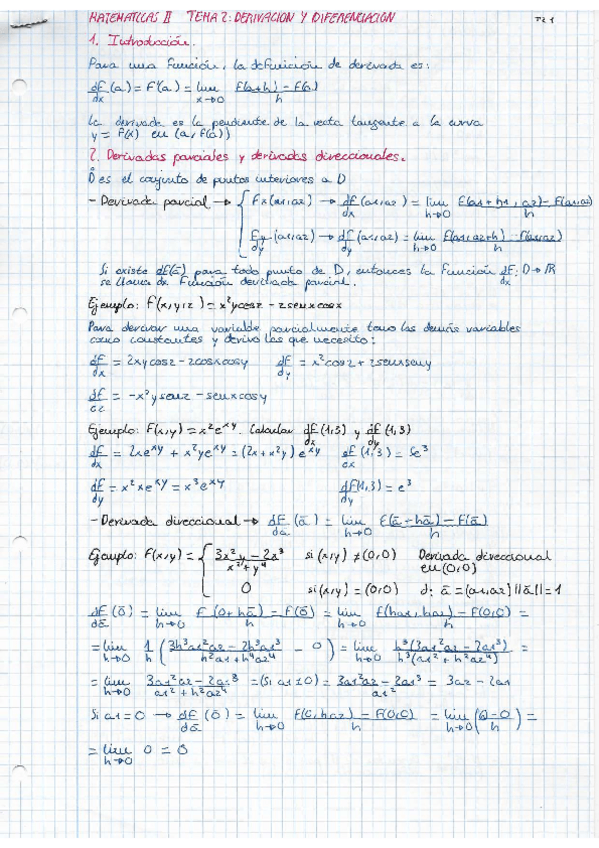 MATEMATICAS II TEMA 2: DERIVACION Y DIFERENCIACION
1. Introducción.
Para una función, la definición de derivada es:
dF/dx (a) = F'(a) = lim x→0 F(a+h) - F(a) / h
La derivada es la pendiente de la recta tangente a la curva
y = F(x) en (a, F(a))
2. Derivadas parciales y derivadas direccionales.
D̊ es el conjunto de puntos interiores a D
- Derivada parcial → { Fx(a1,a2) → dF/dx (a1,a2) = lim h→0 F(a1+h1, a2) - F(a1,a2) / h
Fy/dy (a1,a2) → dF/dy (a1,a2) = lim h→0 F(a1,a2+h) - F(a1,a2) / h
Si existe dF(ā) para todo punto de D, entonces la función dF/dx: D→ℝ
se llama de función derivada parcial.
Ejemplo: F(x,y,z) = x²ycosz - 2senxcosx
Para derivar una variable parcialmente tomo las demás variables
como constantes y derivo las que necesito:
dF/dx = 2xycosz - 2cosxcosy dF/dy = x²cosz + 2senxseny
dF/dz = -x²ysenz - senxcosy
Ejemplo: F(x,y) = x²e^xy. Calcular dF/dx (1,3) y dF/dy (1,3)
dF/dx = 2xe^xy + x²ye^xy = (2x + x²y) e^xy dF/dx (1,3) = 5e³
dF/dy = x²xe^xy = x³e^xy dF/dy (1,3) = e³
- Derivada direccional → dF/dā (ā) = lim h→0 F(ā+hā) - F(ā) / h
Ejemplo: F(x,y) = { 3x²y - 2x³ / x² + y⁴ si (x,y) ≠ (0,0) Derivada direccional
en (0,0)
0 si (x,y) = (0,0) d: ā = (a1,a2) ||ā|| = 1
dF/dā (0̄) = lim h→0 F(0+hā) - F(0̄) / h = lim h→0 F(ha1, ha2) - F(0,0) / h =
= lim h→0 1/h (3h³a1²a2 - 2h³a1³ / h²a1² + h⁴a2⁴ - 0) = lim h→0 h³(3a1²a2 - 2a1³) / h³(a1² + h²a2⁴) =
= lim h→0 3a1²a2 - 2a1³ / a1² + h²a2⁴ = (si a1≠0) = 3a1²a2 - 2a1³ / a1² = 3a2 - 2a1
Si a1 = 0 → dF/dā (0̄) = lim h→0 F(0, ha2) - F(0,0) / h = lim h→0 (0-0 / h) =
= lim h→0 0 = 0